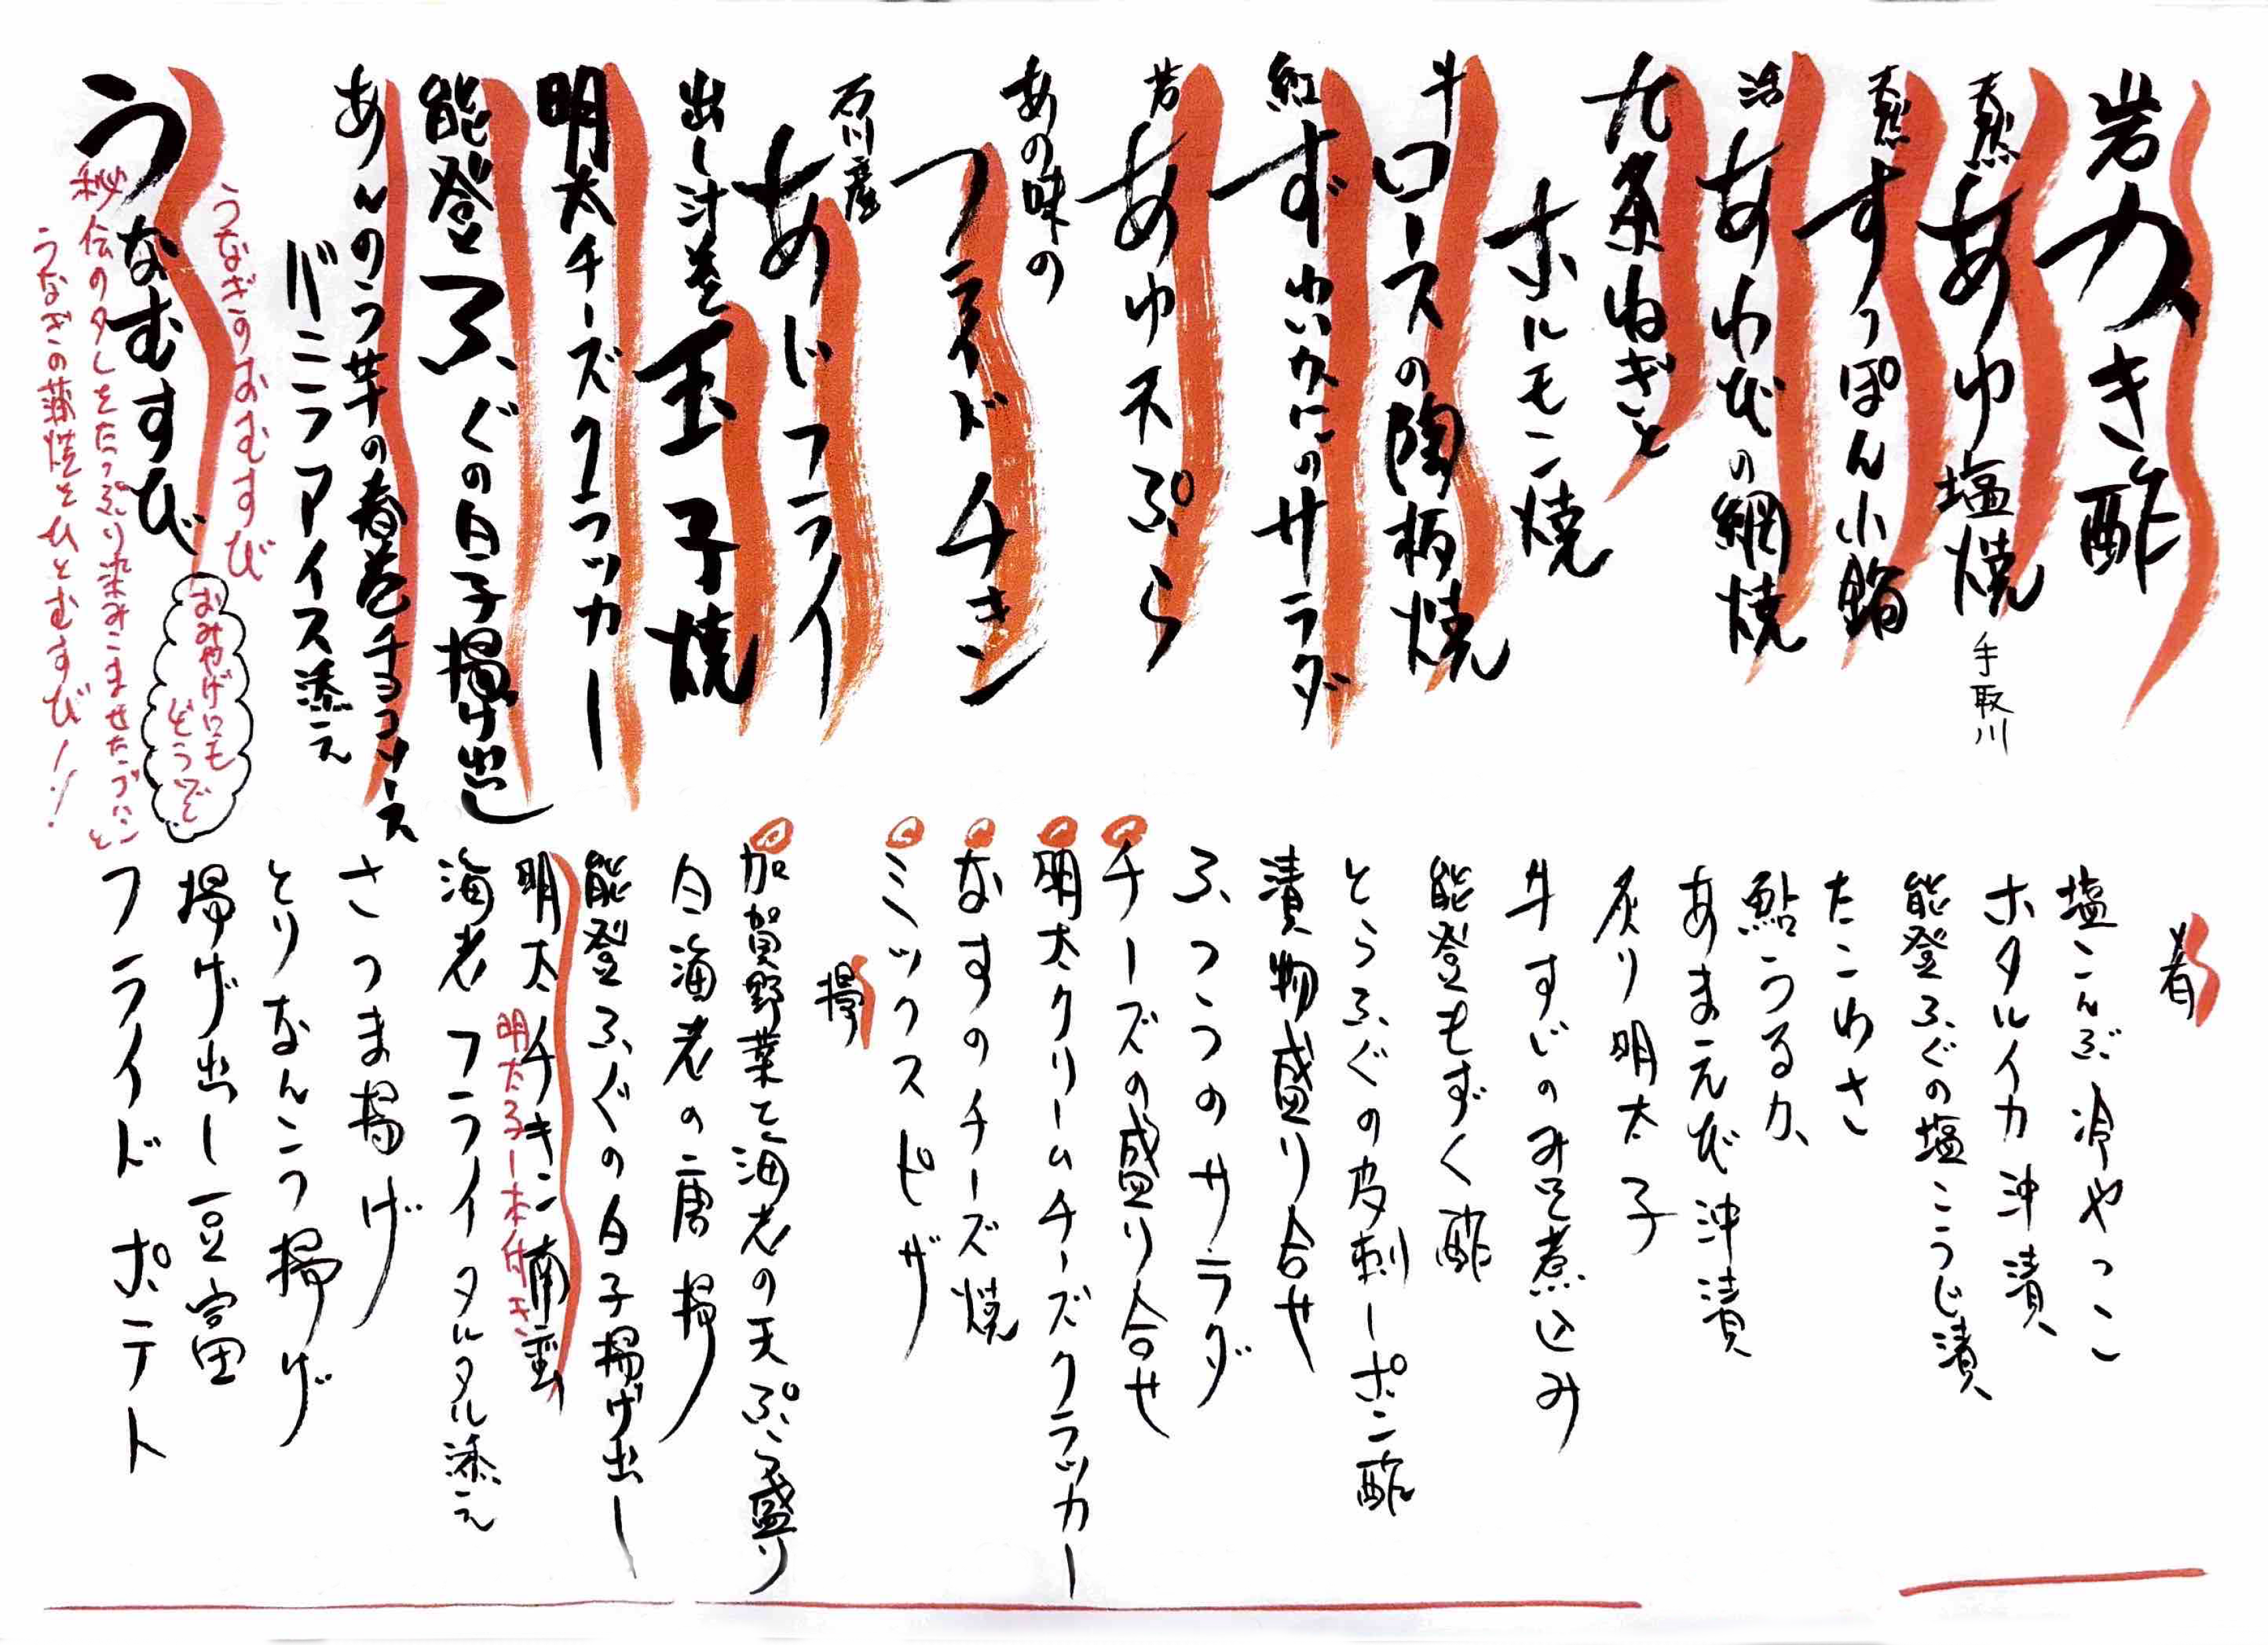 岩カき酢
あゆ塩焼 手取川
すっぽん小鍋
活あわびの網焼
九条ねぎと
ホルモン焼
牛ロースの陶板焼
紅ずわいカにのサラダ
若あゆ天ぷら
あの味の
フライドチキン
石川産
あじフライ
出し汁巻玉子焼
明太チーズクラッカー
能登ふぐの白子揚げ出し
あんのう芋の春巻チョコソース
バニラアイス添え
うなむすび
うなぎのおむすび
おみやげにも
どうぞ
秘伝のタレをたっぷり染みこませたゴハンと
うなぎの蒲焼をひとむすび!!
肴
塩こんぶ冷やっこ
ホタルイカ沖漬
能登ふぐの塩こうじ漬
たこわさ
鮎うるか
あまえび沖漬
炙り明太子
牛すじのみそ煮込み
能登もずく酢
とらふぐの皮刺しポン酢
漬物盛り合せ
ふつうのサラダ
チーズの盛り合せ
明太クリームチーズクラッカー
なすのチーズ焼
ミックスピザ
揚
加賀野菜と海老の天ぷら盛り
白海老の唐揚
能登ふぐの白子揚げ出し
明太チキン南蛮
明太子一本付き
海老フライタルタル添え
さつま揚げ
とりなんこつ揚げ
揚げ出し豆富
フライドポテト